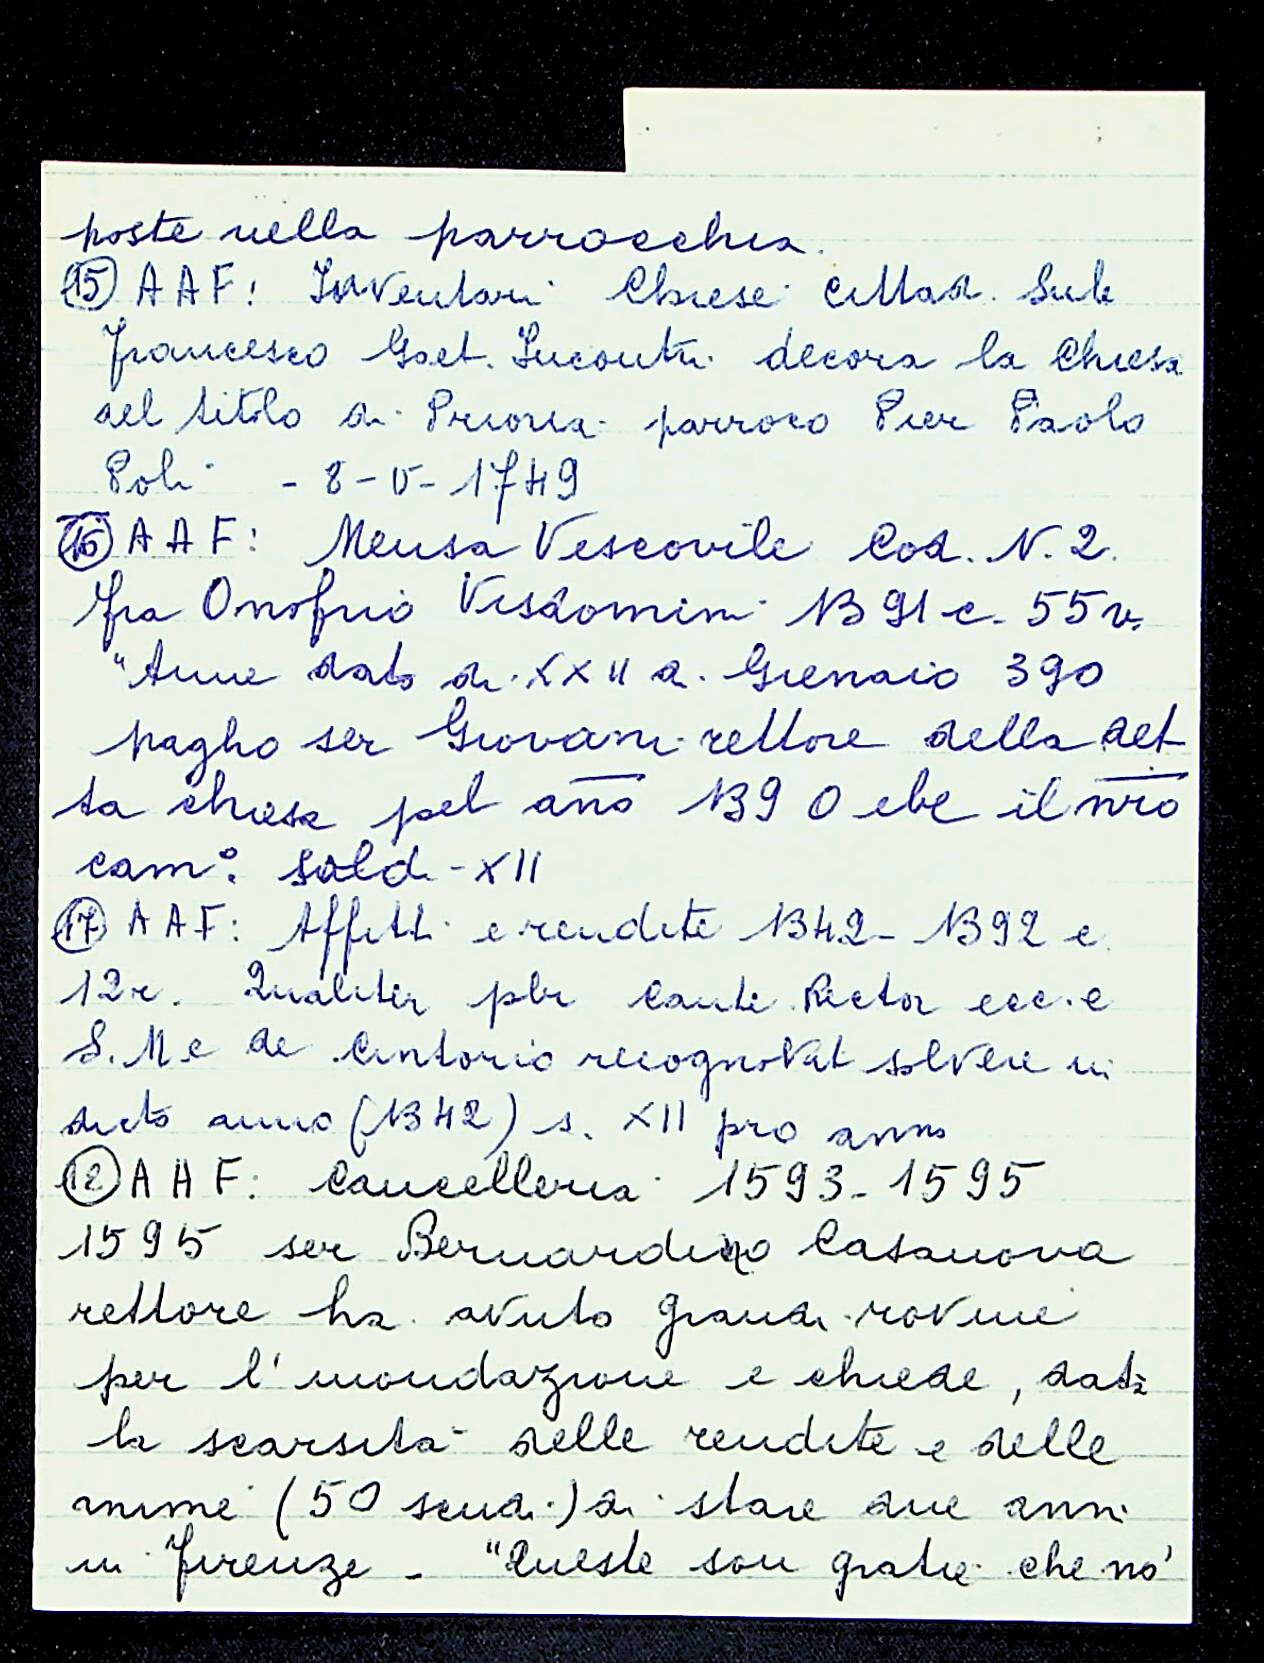 poste nella parrocchia.
(15) AAF: Inventari Chiese Cittad. Sub
Francesco Gaet. Incontri decora la Chiesa
del titolo di Prioria parroco Pier Paolo
Poli - 8-V-1749
(16) AAF: Mensa Vescovile Cod. N. 2.
fra Onofrio Visdomini 1391 c. 55 v.
"Anne dato di XXII di Giennaio 390
pagho ser Giovani rettore della det
ta chiesa pel año 1390 ebe il nr̄o
cam°. soldi - XII
(17) AAF: Affitti e rendite 1342 - 1392 c
12r. Qualiter pbr Cante Rector ecc.e
S. M.e de Cintorio recognovit solvere in
dicto anno (1342) s. XII pro anno
(18) AAF: Cancelleria 1593 - 1595
1595 ser Bernardino Casanova
rettore ha avuto grandi rovine
per l'inondazione e chiede, data
la scarsità delle rendite e delle
anime (50 scudi) di stare due anni
in Firenze - "Queste son gratie che no'